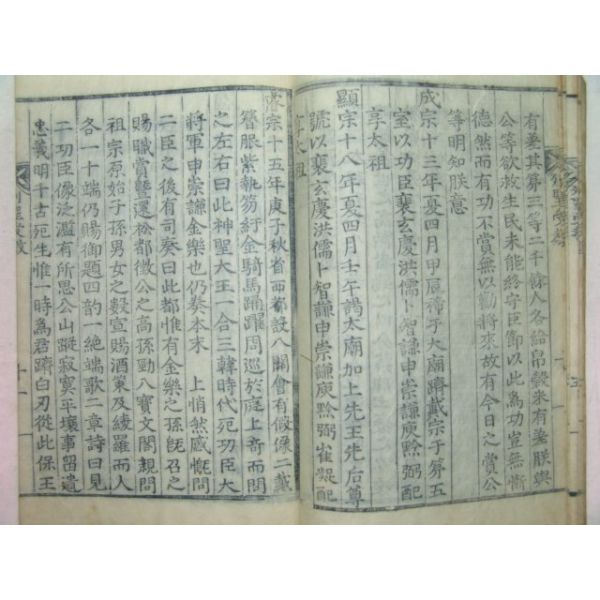 有差其第三等二千餘人各給帛穀米有差朕與
公等欲救生民未能終守臣節以此爲功豈無慚
德然而有功不賞無以勸將來故有今日之賞公
等明知朕意
成宗十三年夏四月甲辰禘于大廟躋戴宗于第五
室以功臣裵玄慶洪儒卜智謙申崇謙庾黔弼配
享太祖
顯宗十八年夏四月壬午謁太廟加上先王先后尊
號以裵玄慶洪儒卜智謙申崇謙庾黔弼崔凝配
享太祖
睿宗十五年庚子秋省西都設八關會有假像二戴
簪服紫執笏紆金騎馬踊躍周巡於庭上奇而問
之左右曰此神聖大王一合三韓時代死功臣大
將軍申崇謙金樂也仍奏本末 上悄然感慨問
二臣之後有司奏曰此都惟有金樂之孫旣召之
賜職賞曁還松都徵公之高孫勁入寶文閣親問
祖宗原始子孫男女之數宣賜酒菓及綾羅而人
各一十端仍賜御題四韻一絶端歌二章詩曰見
二功臣像泛濫有所思公山蹤寂寞平壤事留遺
忠義明千古死生惟一時爲君躋白刃從此保王